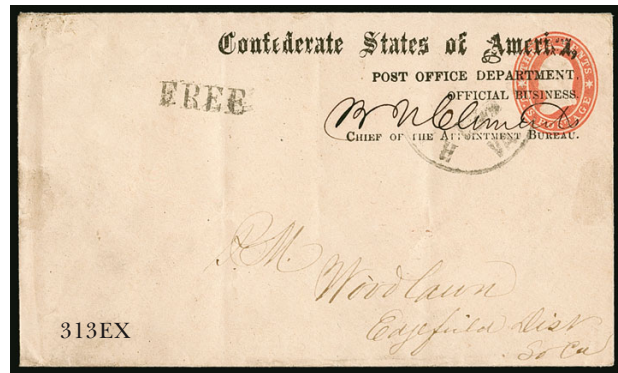 Confederate States of America,
POST OFFICE DEPARTMENT.
OFFICIAL BUSINESS
FREE
B N Clements
CHIEF OF THE APPOINTMENT BUREAU.
THREE CENTS
U.S. POSTAGE
P.M.
Woodlawn
Edgefield Dist
So Ca
313EX